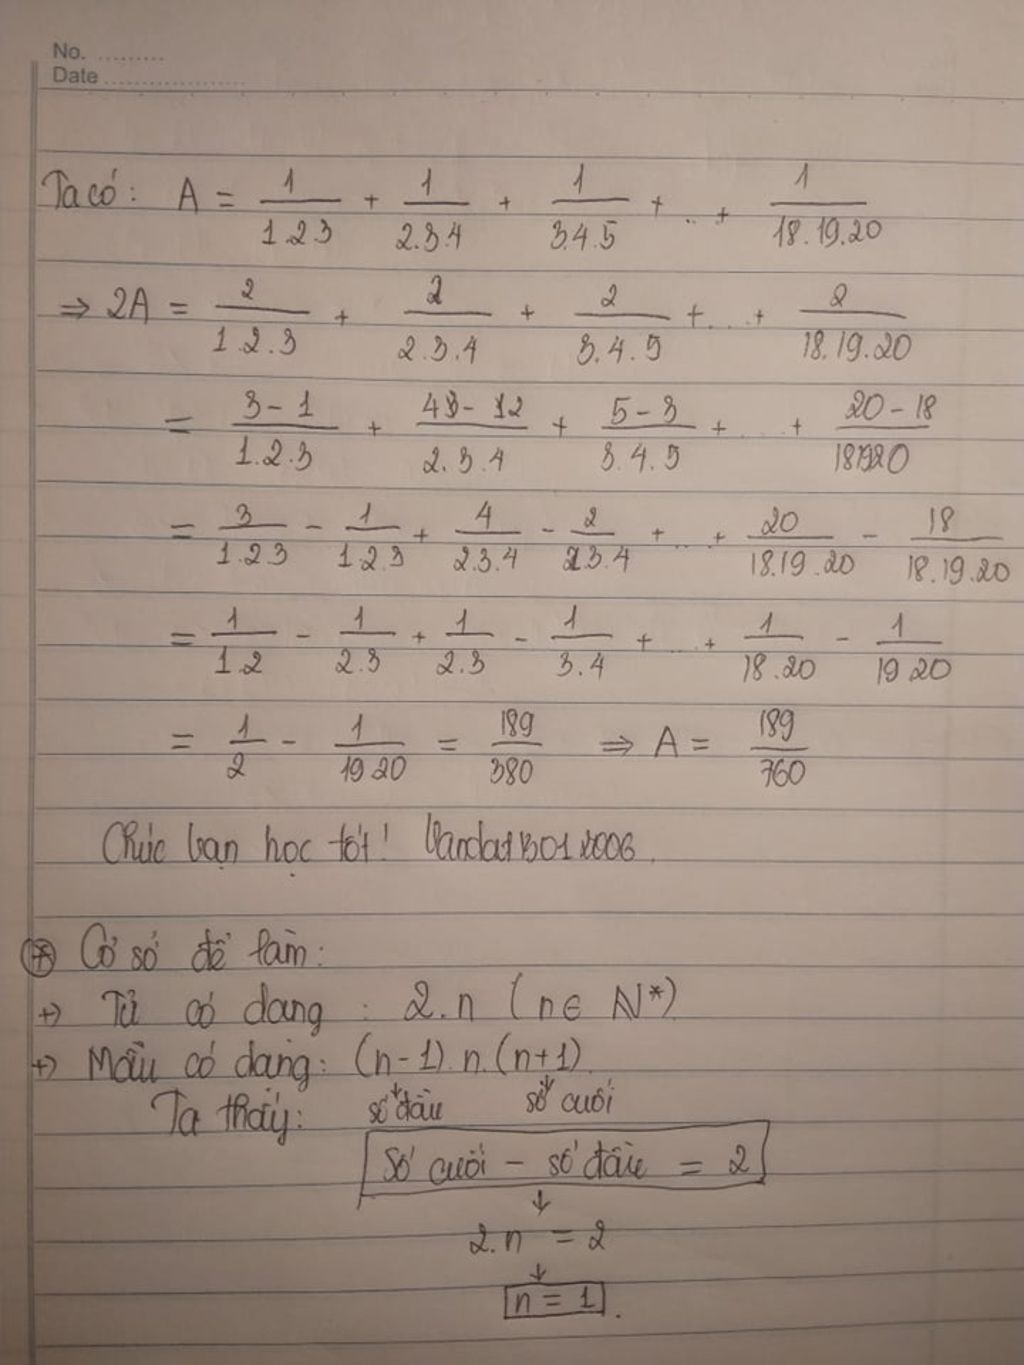 No. .........
Date ......................
Ta có: A = 1/1.2.3 + 1/2.3.4 + 1/3.4.5 + ... + 1/18.19.20
⇒ 2A = 2/1.2.3 + 2/2.3.4 + 2/3.4.5 + ... + 2/18.19.20
= 3-1/1.2.3 + 4-2/2.3.4 + 5-3/3.4.5 + ... + 20-18/18.19.20
= 3/1.2.3 - 1/1.2.3 + 4/2.3.4 - 2/2.3.4 + ... + 20/18.19.20 - 18/18.19.20
= 1/1.2 - 1/2.3 + 1/2.3 - 1/3.4 + ... + 1/18.20 - 1/19.20
= 1/2 - 1/19.20 = 189/380 ⇒ A = 189/760
Chúc bạn học tốt!
* Cơ sở để làm:
+) Tử có dạng : 2.n (n∈ N*)
+) Mẫu có dạng: (n-1).n.(n+1)
Ta thấy: số đầu số cuối
Số cuối - số đầu = 2
↓
2.n = 2
↓
n = 1.